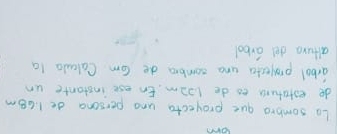 La sombra que proyecta una persona de 1.68m
de estatura es de 1.22m. En ese instante un
árbol proyecta una sombra de 6m Calcula la
altura del árbol